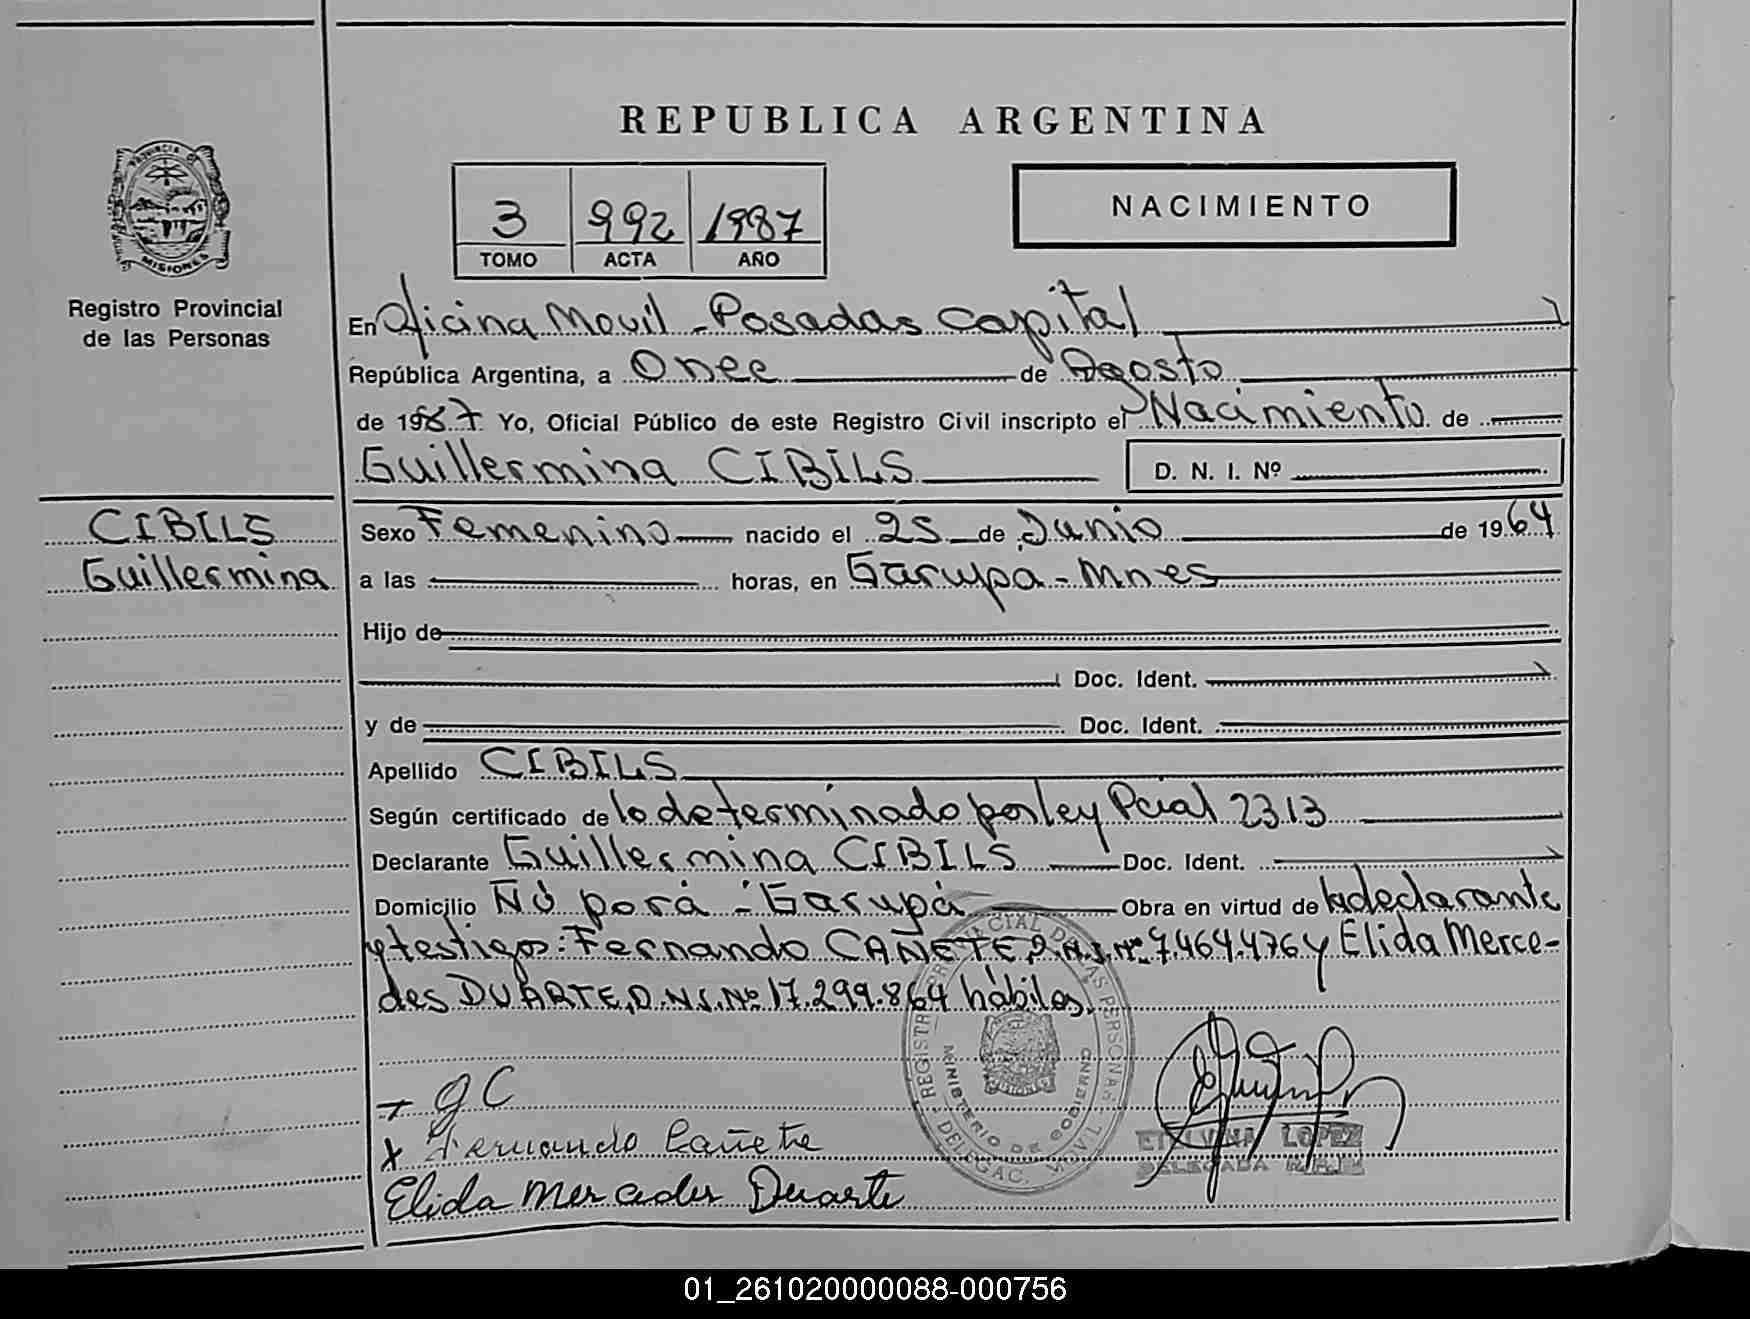 REPUBLICA ARGENTINA
PROVINCIA DE
MISIONES
Registro Provincial
de las Personas
3 992 1987
TOMO ACTA AÑO
NACIMIENTO
En Oficina Movil - Posadas Capital
República Argentina, a Once de Agosto
de 1987 Yo, Oficial Público de este Registro Civil inscripto el Nacimiento de
Guillermina CIBILS D. N. I. Nº
CIBILS
Guillermina
Sexo Femenino nacido el 25 de Junio de 1964
a las horas, en Garupa - Mnes
Hijo de
Doc. Ident.
y de Doc. Ident.
Apellido CIBILS
Según certificado de lo determinado por ley Pcial 2313
Declarante Guillermina CIBILS Doc. Ident.
Domicilio Ñú porá - Garupá Obra en virtud de la declarante
y testigos: Fernando CAÑETE D.N.I. Nº 7.464.476 y Elida Merce-
des DUARTE, D.N.I. Nº 17.299.864 hábiles.
REGISTRO PROVINCIAL DE LAS PERSONAS
MINISTERIO DE GOBIERNO
DELEGAC. MOVIL
+ g C
x Fernando Cañete
Elida Mercedes Duarte
ETELVINA LOPEZ
DELEGADA
01_261020000088-000756